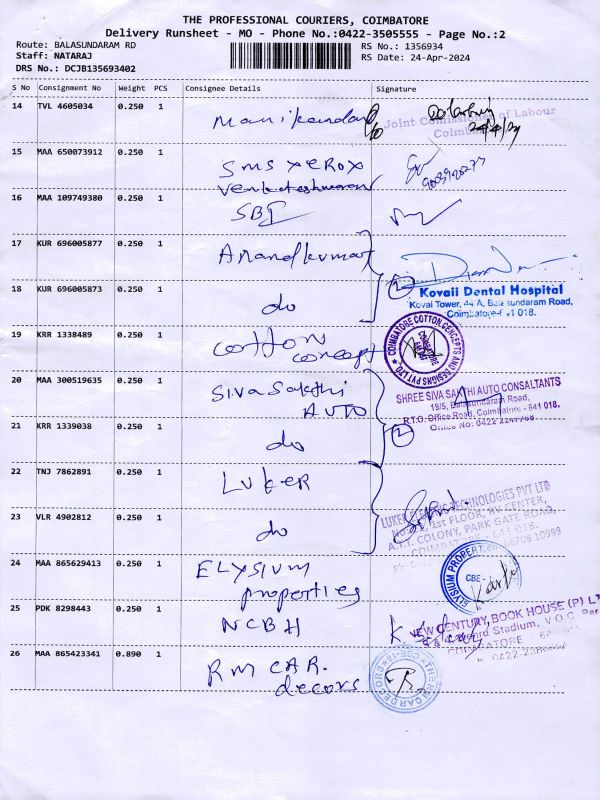 THE PROFESSIONAL COURIERS, COIMBATORE
Delivery Runsheet - MO - Phone No.:0422-3505555 - Page No.:2
Route: BALASUNDARAM RD
Staff: NATARAJ
DRS No.: DCJB135693402
RS No.: 1356934
RS Date: 24-Apr-2024
S No Consignment No Weight PCS Consignee Details Signature
14 TVL 4605034 0.250 1 Manikandan
Joint of Labour
24/4/24
15 MAA 650073912 0.250 1 SMS XEROX
16 MAA 109749380 0.250 1 Venkateshwaran
SBI
17 KUR 696005877 0.250 1 Anandkumar
2
18 KUR 696005873 0.250 1 do
Kovaii Dental Hospital
Kovai Tower, 44 A, Balasundaram Road,
Coimbatore-641 018.
19 KRR 1338489 0.250 1 cotton concept
COIMBATORE COTTON CONCEPTS AND DESIGNS PVT LTD
20 MAA 300519635 0.250 1 SIVA Sakthi AUTO
SHREE SIVA SAKTHI AUTO CONSALTANTS
19/5, Balasundaram Road,
R.T.O. Office Road, Coimbatore - 641 018.
21 KRR 1339038 0.250 1 do
2
22 TNJ 7862891 0.250 1 LUKER
LUKER ELECTRIC TECHNOLOGIES PVT LTD
1st FLOOR, RV CENTER,
A.T.T. COLONY, PARK GATE ROAD,
COIMBATORE - 641 018.
23 VLR 4902812 0.250 1 do
24 MAA 865629413 0.250 1 ELYSIUM properties
ELYSIUM PROPERTIES
CBE
25 PDK 8298443 0.250 1 NCBH
NEW CENTURY, BOOK HOUSE (P) L
Nehru Stadium, V.O.C.
COIMBATORE
26 MAA 865423341 0.890 1 RM CAR. decors